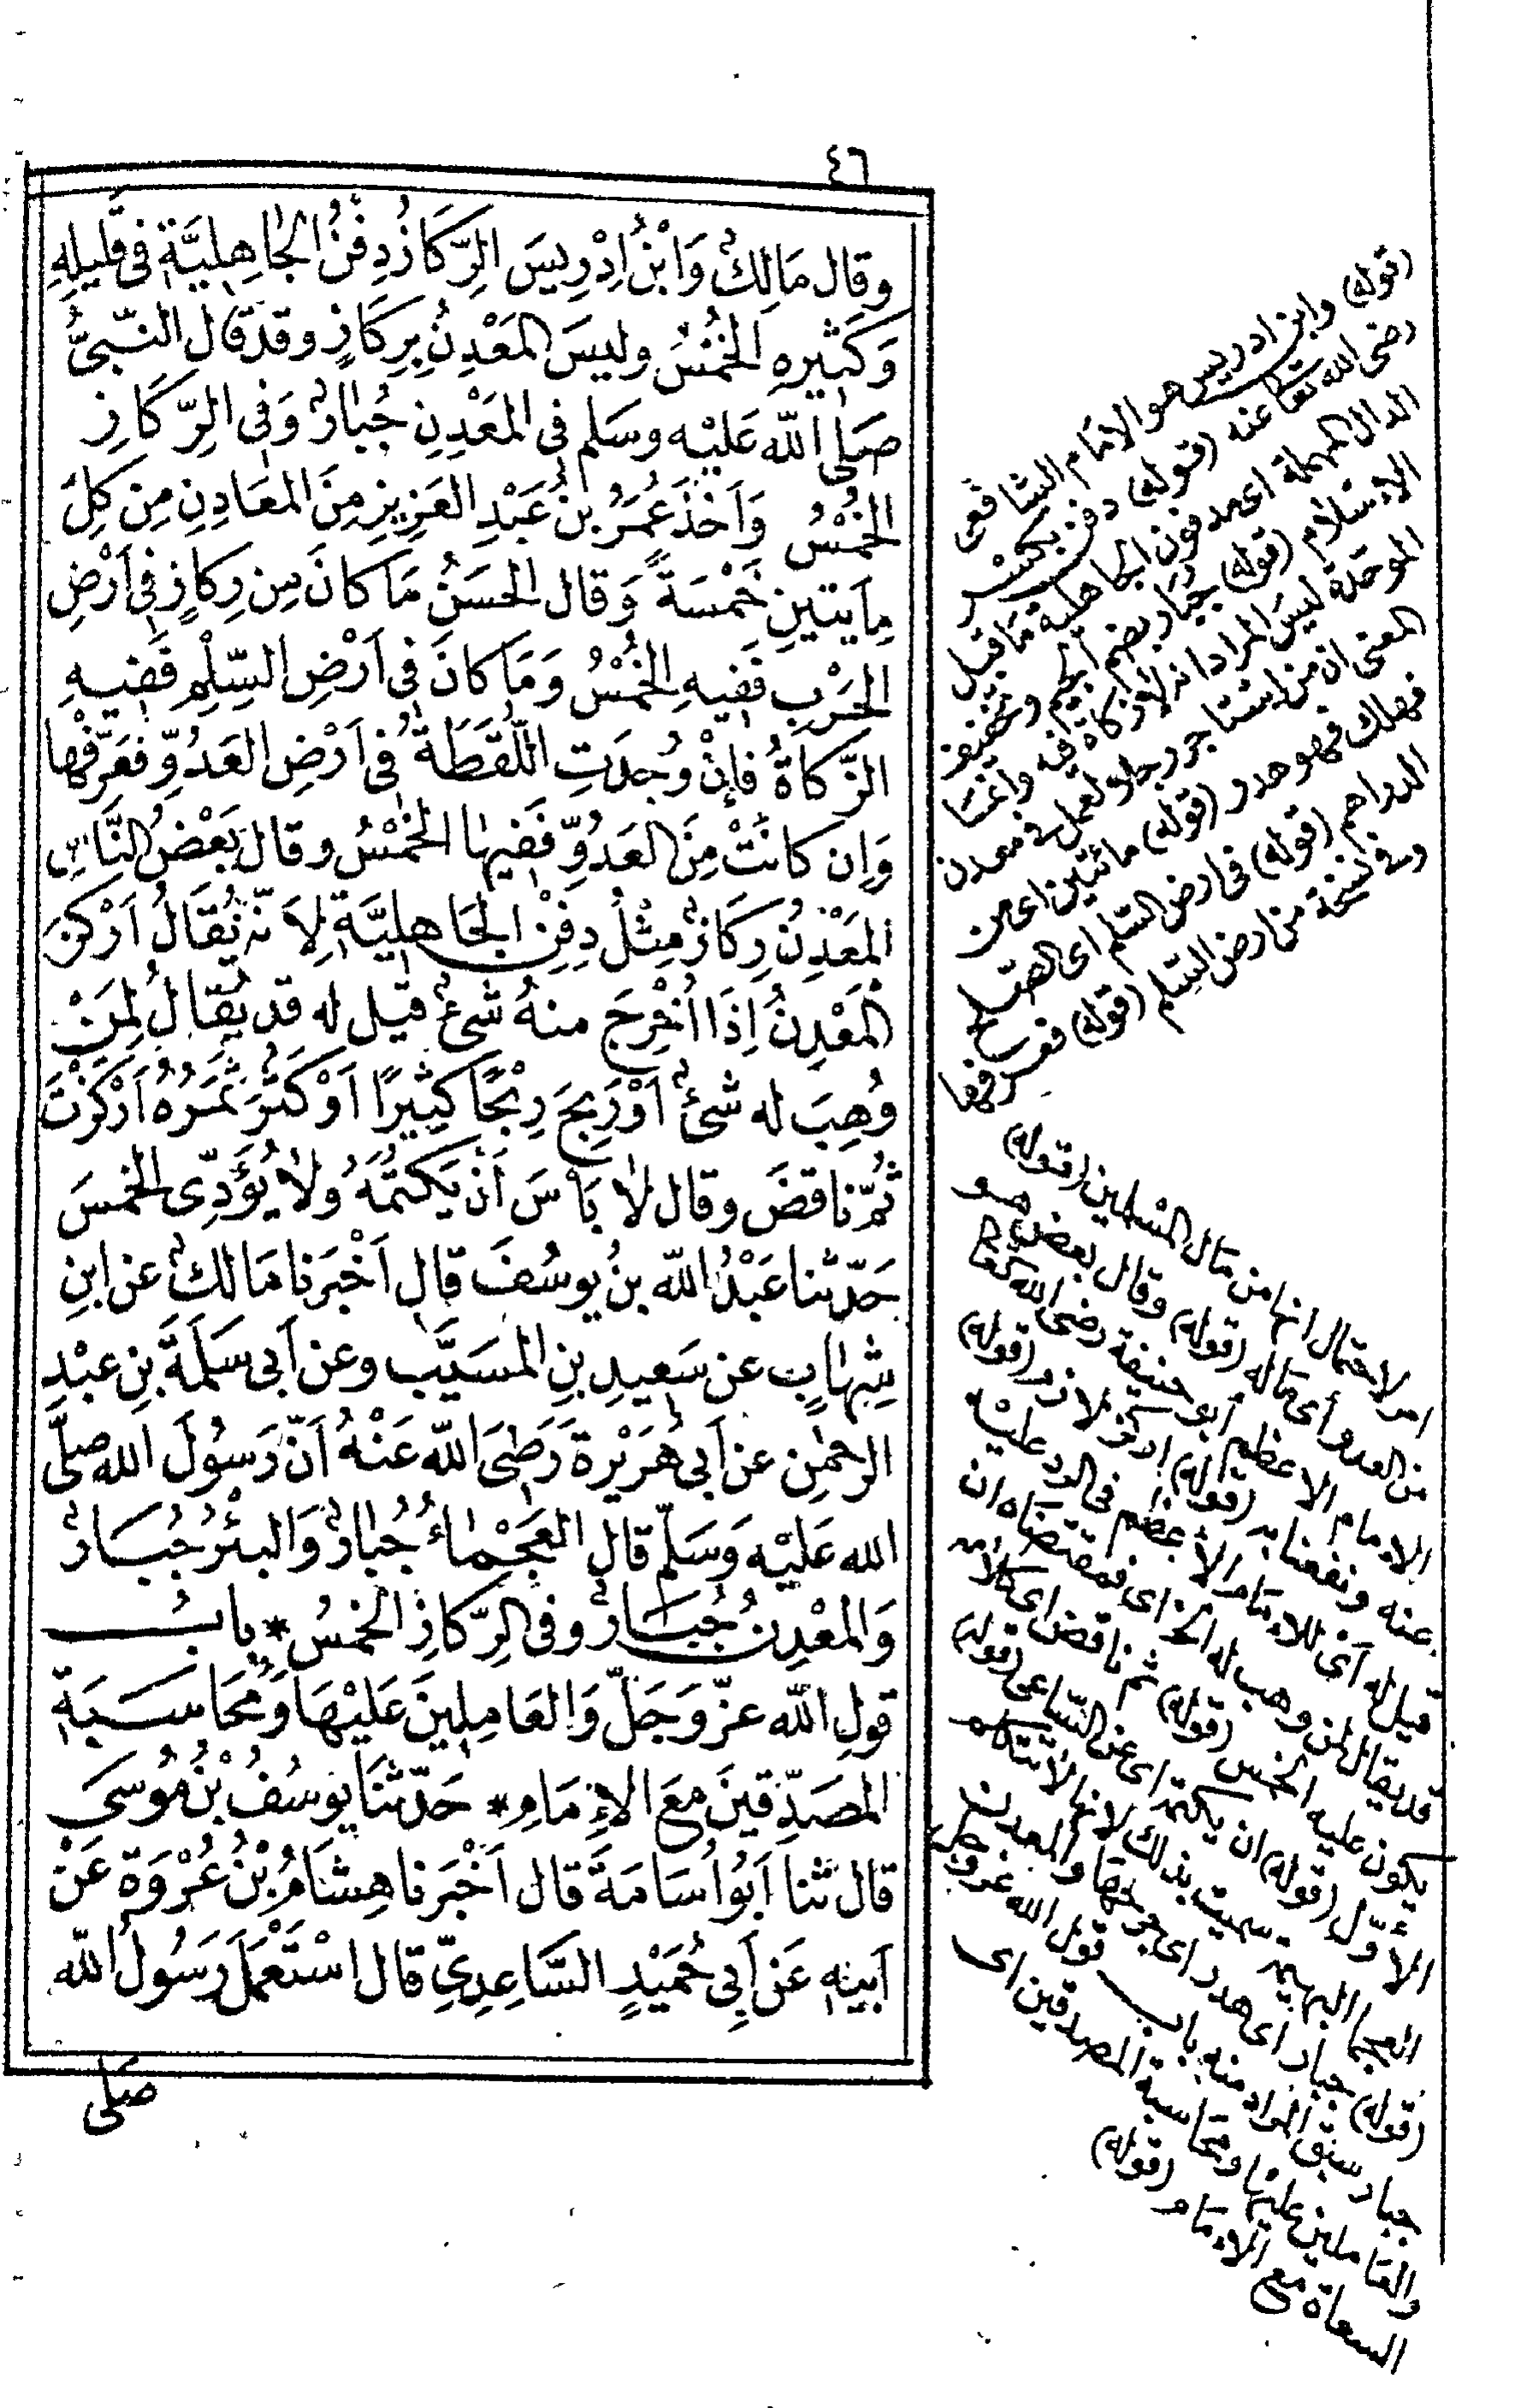 ٤٦
وقال مَالِكٌ وَابْنُ اِدْرِيسَ الرِّكَازُ دِفْنُ الْجَاهِلِيَّةِ فى قَلِيلِهِ
وَكَثِيرِهِ الخُمُسُ وليسَ المَعْدِنُ بِرِكَازٍ وقد قال النَّبىُّ
صَلى الله عَليْه وسَلم فى المَعْدِنِ جُبَارٌ وَفى الرِّكَازِ
الخُمْسُ وَاَخَذَ عُمَرُ بنُ عَبْدِ العَزِيزِ مِنَ المعَادِنِ مِن كلِّ
مِايَتينِ خَمْسَةً وَقال الحَسَنُ مَا كانَ مِن رِكازٍ فى اَرْضِ
الحَرْبِ فَفِيهِ الخُمْسُ وَمَا كانَ فى اَرْضِ السِّلْمِ فَفيهِ
الزَّكاةُ فإنْ وُجِدَتِ اللُّقَطَةُ فى اَرْضِ العَدُوِّ فعَرِّفْها
وَاِن كانَتْ مِنَ العَدُوِّ فَفِيهَا الخُمْسُ وقال بَعْضُ النَّاسِ
المَعْدِنُ رِكَازٌ مِثْلُ دِفْنِ الجَاهِلِيَّةِ لِاَنّه يُقَالُ اَرْكَزَ
المَعْدِنُ اِذَا اُخْرِجَ منهُ شىءٌ قيل له قد يُقالُ لِمَنْ
وُهِبَ له شىءٌ اَوْ رَبِحَ رِبْحًا كَثِيرًا اَوْ كَثُرَ ثَمَرُهُ اَرْكَزْتَ
ثمّ نَاقضَ وقال لا بَاْسَ اَنْ يَكتُمَهُ ولا يُؤَدِّى الخمسَ
حَدّثنا عَبْدُ الله بنُ يوسُفَ قال اَخْبَرَنا مَالكٌ عن ابنِ
شِهَابٍ عن سَعِيدِ بنِ المسَيَّب وعن اَبى سَلَمَةَ بنِ عبْدِ
الرحمٰنِ عن اَبى هُرَيْرةَ رَضِىَ الله عَنْهُ اَنّ رَسُولَ الله صلّى
الله عَلَيْه وَسَلّم قال العَجْمَاءُ جُبَارٌ وَالبئْرُ جُبَارٌ
وَالمَعْدِنُ جُبَارٌ وفى الرِّكَازِ الخمْسُ * بابُ
قولِ الله عزّ وَجَلّ وَالعَامِلِينَ عَليْهَا وَمُحَاسَبَةِ
المصَدِّقينَ معَ الإمَامِ * حَدّثنَا يوسُفُ بْنُ مُوسَى
قال ثنا اَبُو اُسَامَةَ قال اَخْبَرَنا هِشَامُ بْنُ عُرْوَة عَنْ
اَبيهِ عَنْ اَبِى حُمَيْدٍ السَّاعِدِىِّ قال اسْتَعْمَلَ رَسُولُ الله
صَلى
(قوله) وابن ادريس هو الامام الشافعى
رضى الله تعا عنه (قوله) دفن بكسر
الدال المهملة اى مدفون الجاهلية مَا قبل
الاسلام (قوله) جُبَار بضم الجيم وتخفيف
الموحدة ليس المراد انه لا زكاة فيه وانما
المعنى ان من استاجر رجلا لعمل فى معدن
فهلك فهو هدر (قوله) مائتين اى من
الدراهم (قوله) فى ارض السّلم اى الصلح
وفى نسخة من ارض السّلم (قوله) فعرفها
لاحتمال انها من مال المسلمين (قوله)
من العدو اى ماله (قوله) وقال بعض هو
الامام الاعظم ابو حنيفة رضى الله تعا
عنه ونفعنا به (قوله) اركز لانه (قوله)
قيل له اى للامام الأعظم فى الرد عليه
قد يقال لمن وهب له الخ اى فمقتضاه ان
يكون عليه الخمس (قوله) ثم ناقض اى كلامه
الأوّل (قوله) ان يكتمه اى عن السّاعى (قوله)
العجما البهيمة سميت بذلك لانها لا تتكلم
(قوله) جبار اى هدر اى جرحها والمعدن
جبار سبق المراد منه باب قول الله عز وجل
والعاملين عليها ومحاسبة المصدقين اى
السعاة مع الامام (قوله)